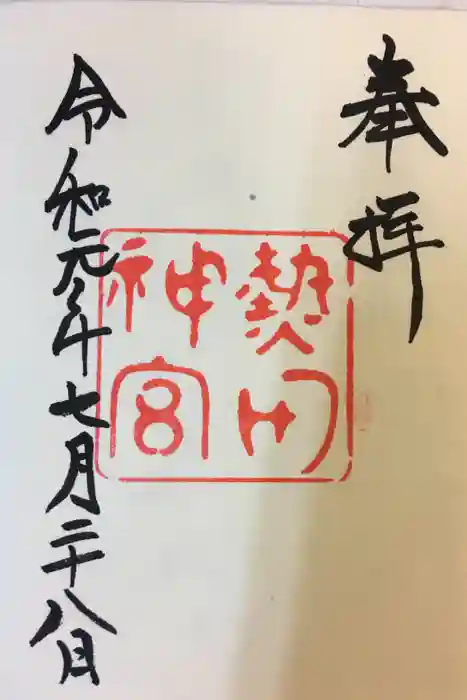 奉拝
熱田
神宮
令和元年七月二十八日